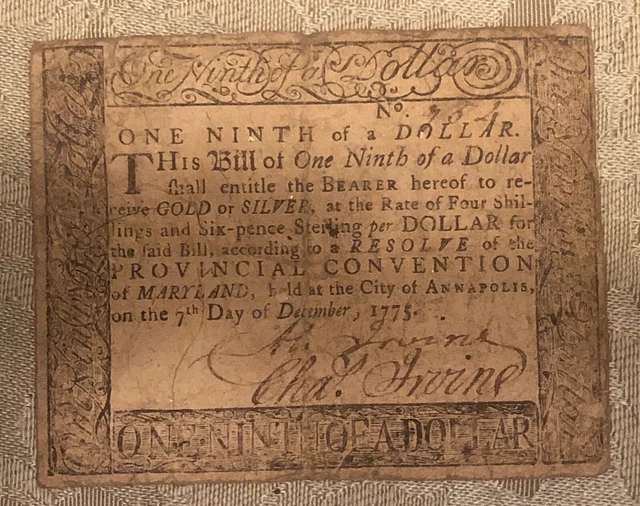 One Ninth of a Dollar
No.
ONE NINTH of a DOLLAR.
THis Bill of One Ninth of a Dollar
ſhall entitle the BEARER hereof to re-
ceive GOLD or SILVER, at the Rate of Four Shil-
lings and Six-pence Sterling per DOLLAR for
the ſaid Bill, according to a RESOLVE of the
PROVINCIAL CONVENTION
of MARYLAND, held at the City of ANNAPOLIS,
on the 7th Day of December, 1775.
Irvine
Chas. Irvine
ONE NINTH OF A DOLLAR